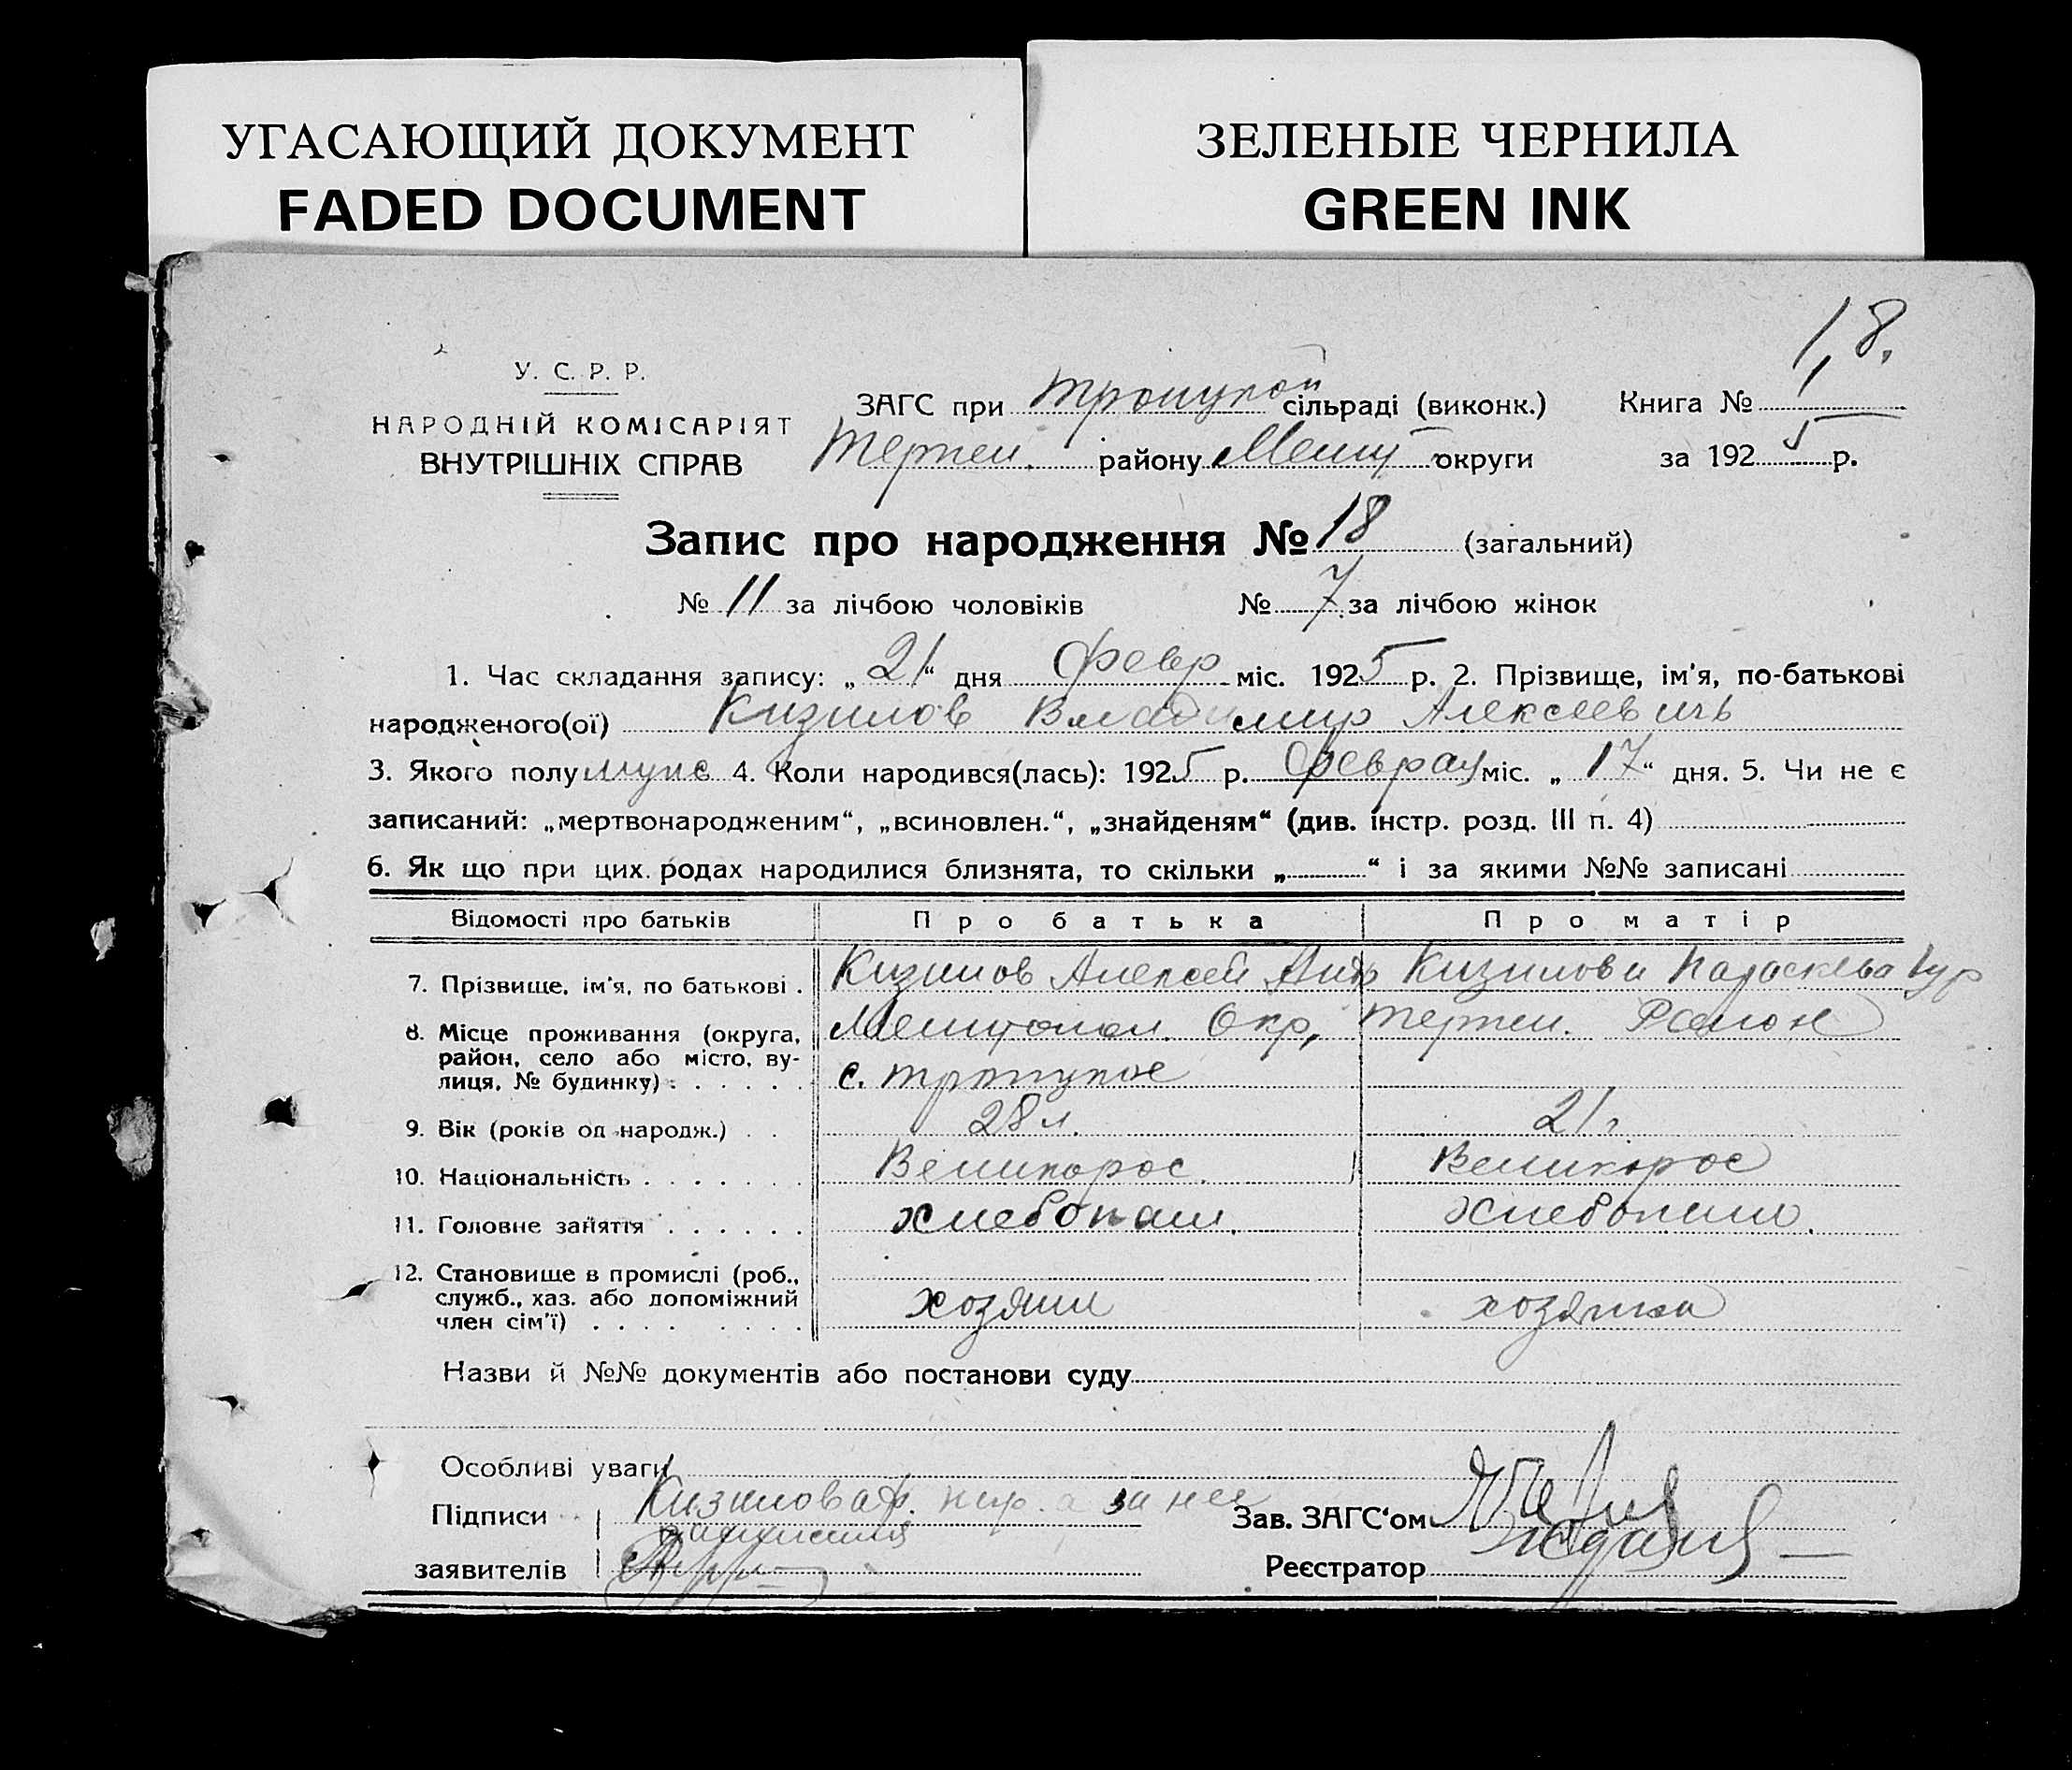 УГАСАЮЩИЙ ДОКУМЕНТ
FADED DOCUMENT
ЗЕЛЕНЫЕ ЧЕРНИЛА
GREEN INK
1,8.
У. С. Р. Р.
НАРОДНІЙ КОМІСАРІЯТ
ВНУТРІШНІХ СПРАВ
ЗАГС при сільраді (виконк.)
Книга №
Терпен. району Мелит округи
за 1925 р.
Запис про народження № 18 (загальний)
№ 11 за лічбою чоловіків № 7 за лічбою жінок
1. Час складання запису: „21“ дня Февр міс. 1925 р. 2. Прізвище, ім'я, по-батькові
народженого(ої) Кизилов Владимир Алексеевичь
3. Якого полу 4. Коли народився(лась): 1925 р. Февраля міс. „17“ дня. 5. Чи не є
записаний: „мертвонародженим“, „всиновлен.“, „знайденям“ (див. інстр. розд. III п. 4)
6. Як що при цих родах народилися близнята, то скільки „ “ і за якими №№ записані
Відомості про батьків Про батька Про матір
7. Прізвище, ім'я, по батькові . Кизилов Алексей Кизилова Параскева
8. Місце проживання (округа, Мелитопол. Окр, Терпен. Район
район, село або місто, ву-
лиця, № будинку) . . . . . с.
9. Вік (років од народж.) . . 28 л. 21 г.
10. Національність . . . . . . . Великорос. Великорос
11. Головне заняття . . . . . . хлебопаш. хлебопаш.
12. Становище в промислі (роб.,
служб., хаз. або допоміжний хозяин хозяйка
член сім'ї) . . . . . . . .
Назви й №№ документів або постанови суду
Особливі уваги
Підписи Кизилова а за нее
Зав. ЗАГС'ом
заявителів
Реєстратор